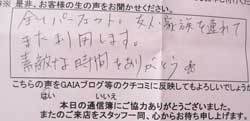 ※是非、お客様の生の声をお聞かせください。
全てパーフェクト。友人・家族を連れて
また利用します。
素敵な時間をありがとう
こちらの声をGAIAブログ等のクチコミに反映してもよろしいでしょう
はい いいえ
本日の通信簿にご協力ありがとうございました。
またのご来店をスタッフ一同、心からお待ち申し上げます